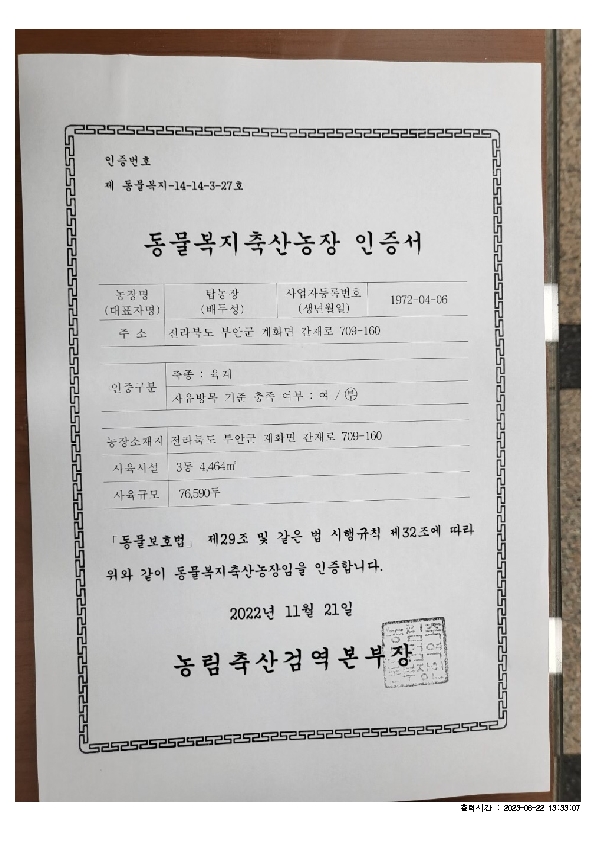 인증번호
제 동물복지-14-14-3-27호
동물복지축산농장 인증서
농장명
(대표자명)
탑농장
(배두성)
사업자등록번호
(생년월일)
1972-04-06
주 소
전라북도 부안군 계화면 간재로 709-160
인증구분
축종 : 육계
자유방목 기준 충족 여부 : 여 / 부
농장소재지
전라북도 부안군 계화면 간재로 709-160
사육시설
3동 4,464㎡
사육규모
76,590두
「동물보호법」 제29조 및 같은 법 시행규칙 제32조에 따라
위와 같이 동물복지축산농장임을 인증합니다.
2022년 11월 21일
농림축산검역본부장
출력시간 : 2023-06-22 13:33:07